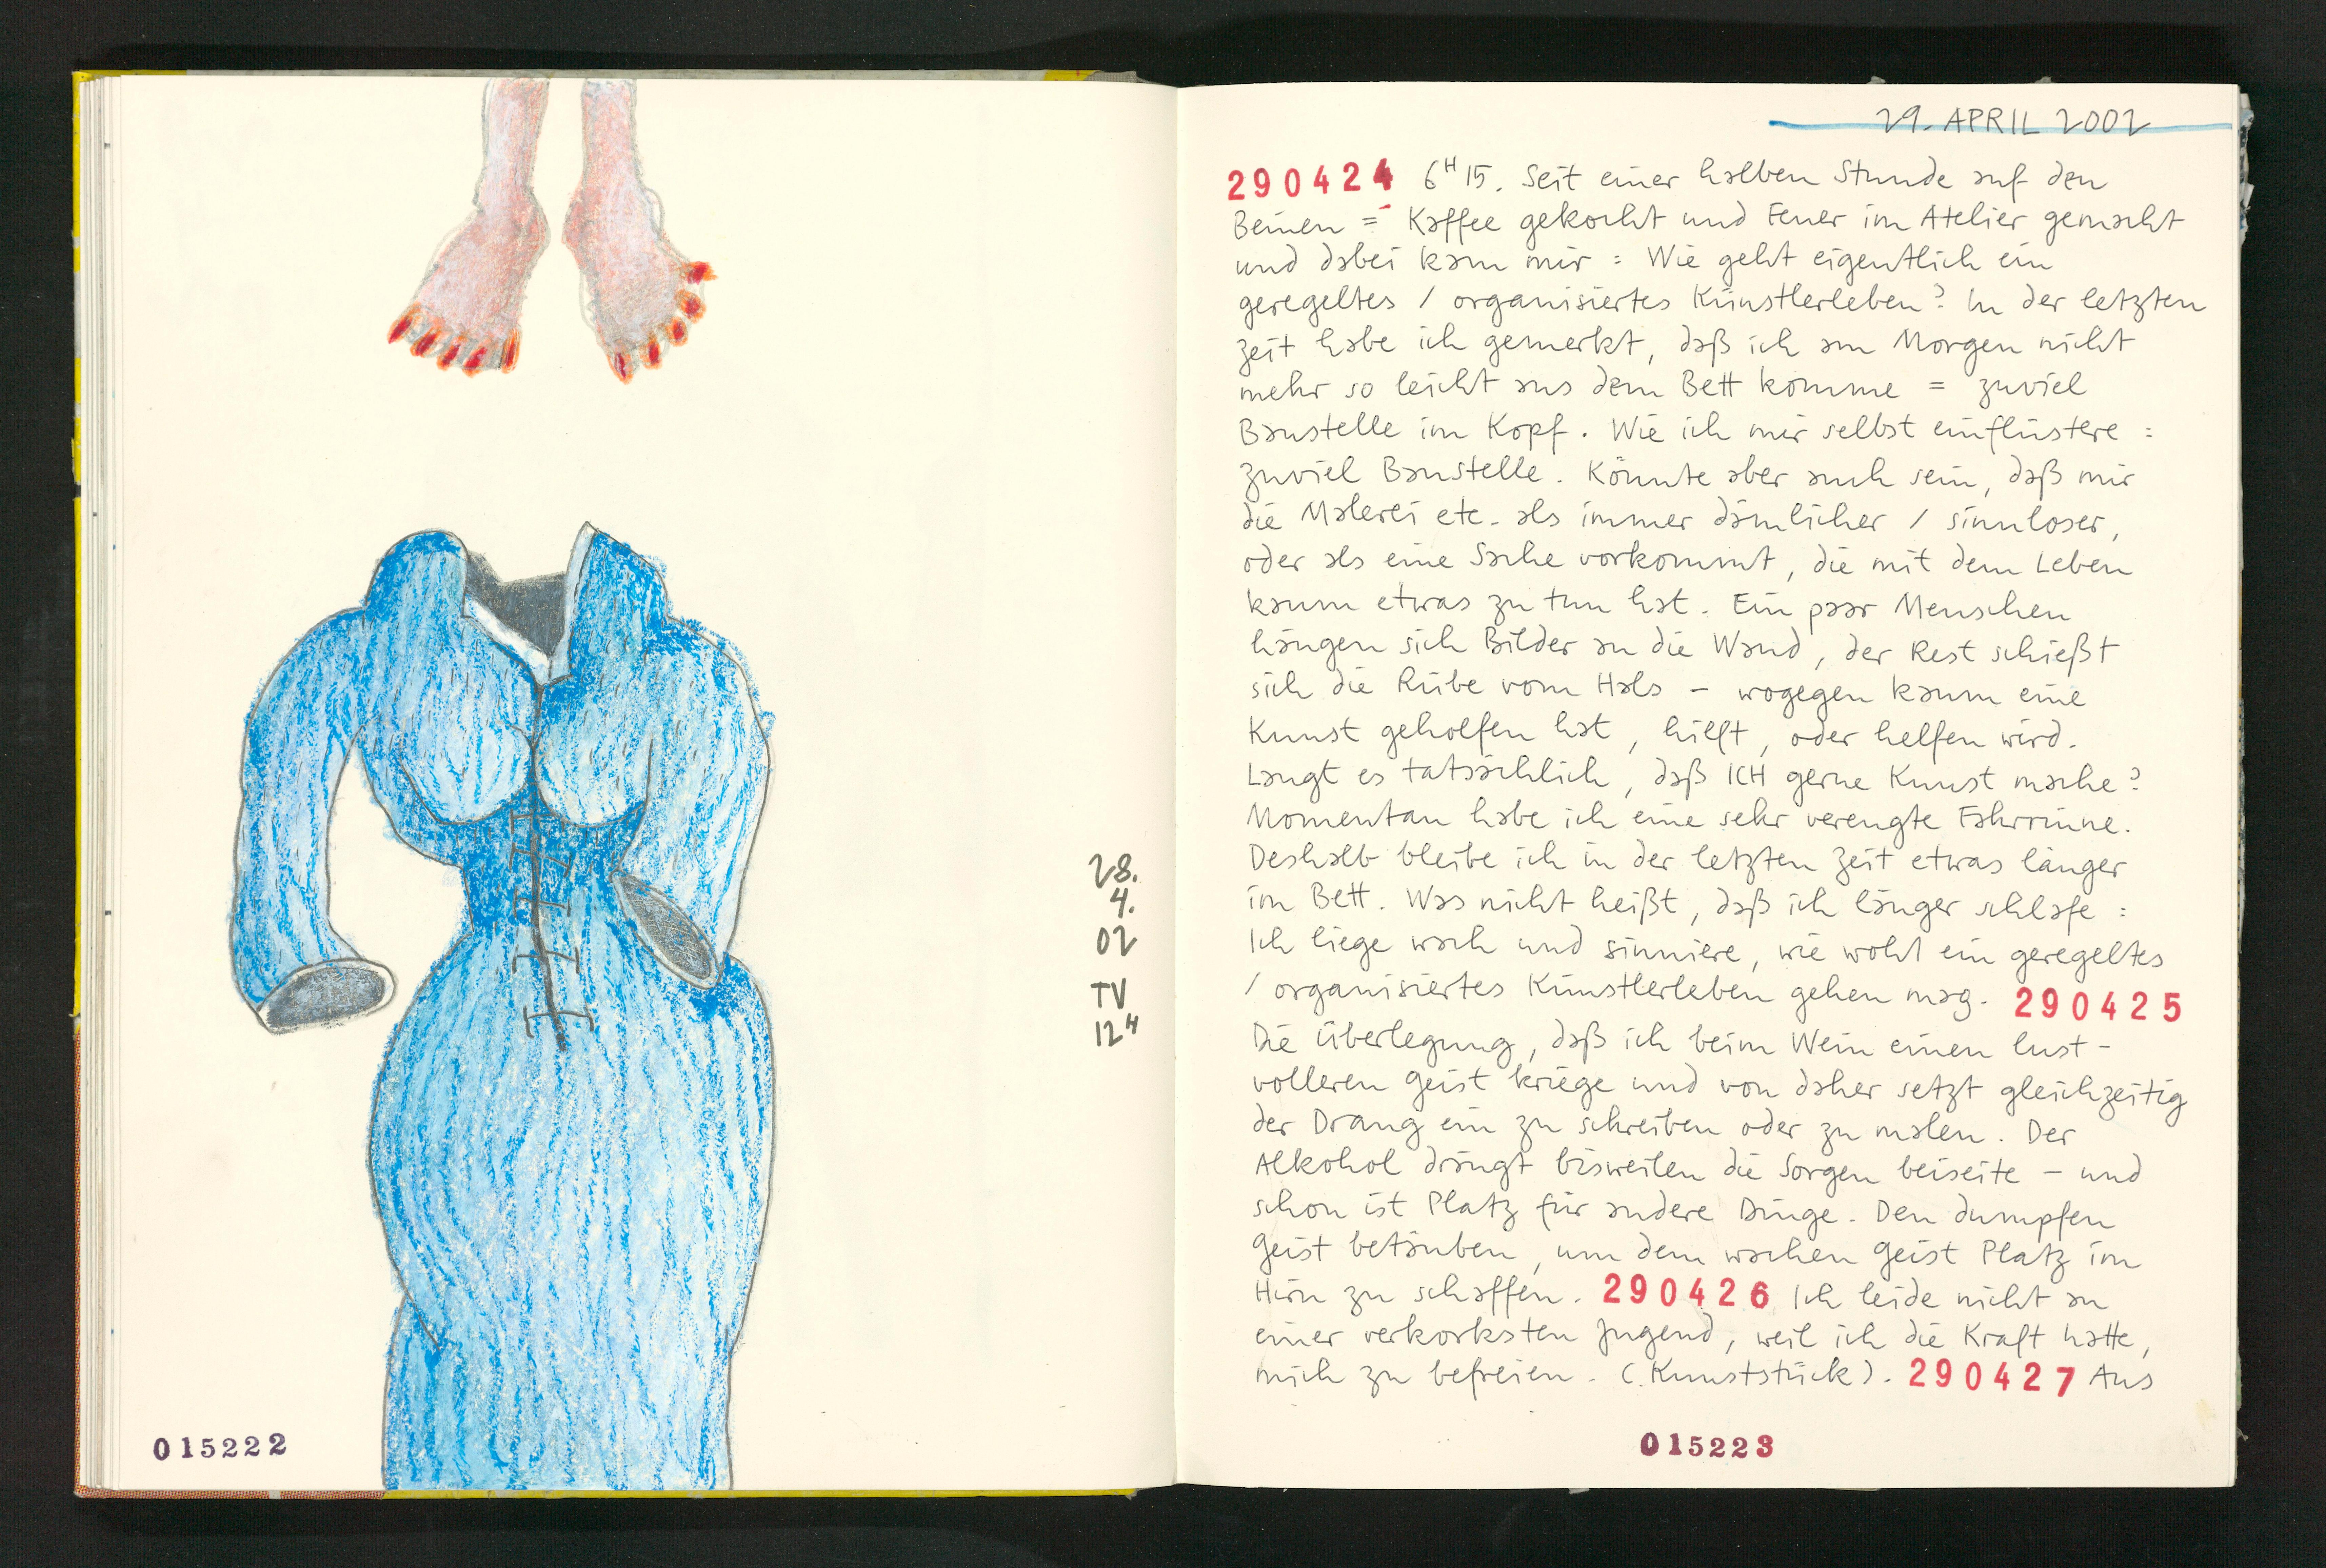 28.
4.
02
TV
12H
015222
29. APRIL 2002
290424 6H15. Seit einer halben Stunde auf den
Beinen = Kaffee gekocht und Feuer im Atelier gemacht
und dabei kam mir : Wie geht eigentlich ein
geregeltes / organisiertes Künstlerleben? In der letzten
Zeit habe ich gemerkt, daß ich am Morgen nicht
mehr so leicht aus dem Bett komme = zuviel
Baustelle im Kopf. Wie ich mir selbst einflüstere :
zuviel Baustelle. Könnte aber auch sein, daß mir
die Malerei etc. als immer dämlicher / sinnloser,
oder als eine Sache vorkommt, die mit dem Leben
kaum etwas zu tun hat. Ein paar Menschen
hängen sich Bilder an die Wand, der Rest schießt
sich die Rübe vom Hals – wogegen kaum eine
Kunst geholfen hat, hilft, oder helfen wird.
Langt es tatsächlich, daß ICH gerne Kunst mache?
Momentan habe ich eine sehr verengte Fahrrinne.
Deshalb bleibe ich in der letzten Zeit etwas länger
im Bett. Was nicht heißt, daß ich länger schlafe :
Ich liege wach und sinniere, wie wohl ein geregeltes
/ organisiertes Künstlerleben gehen mag. 290425
Die Überlegung, daß ich beim Wein einen lust-
volleren Geist kriege und von daher setzt gleichzeitig
der Drang ein zu schreiben oder zu malen. Der
Alkohol drängt bisweilen die Sorgen beiseite – und
schon ist Platz für andere Dinge. Den dumpfen
Geist betäuben, um dem wachen Geist Platz im
Hirn zu schaffen. 290426 Ich leide nicht an
einer verkorksten Jugend, weil ich die Kraft hatte,
mich zu befreien. (Kunststück). 290427 Aus
015223